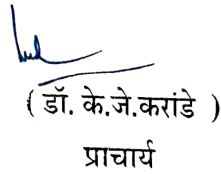 ( डॉ. के.जे.करांडे )
प्राचार्य